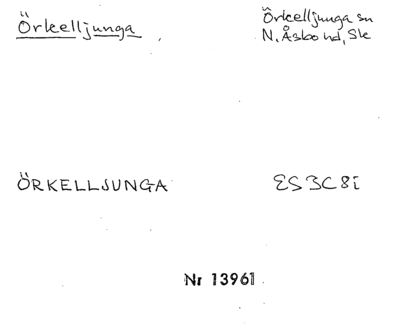 Örkelljunga
Örkelljunga sn
N. Åsbo hd, Sk
ÖRKELLJUNGA
ES3C8i
Nr 13961